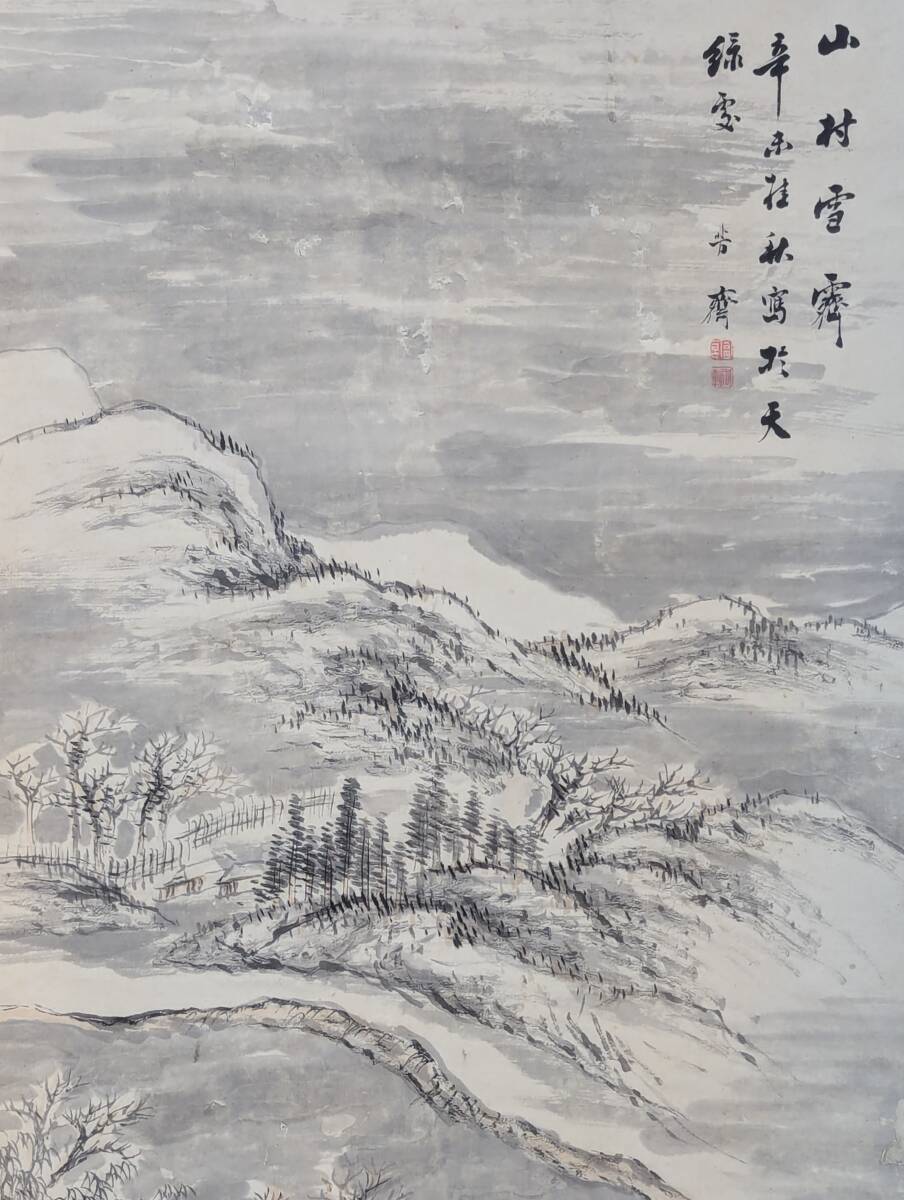 山村雪霽
辛未桂秋寫於天
綠雯 芳齋